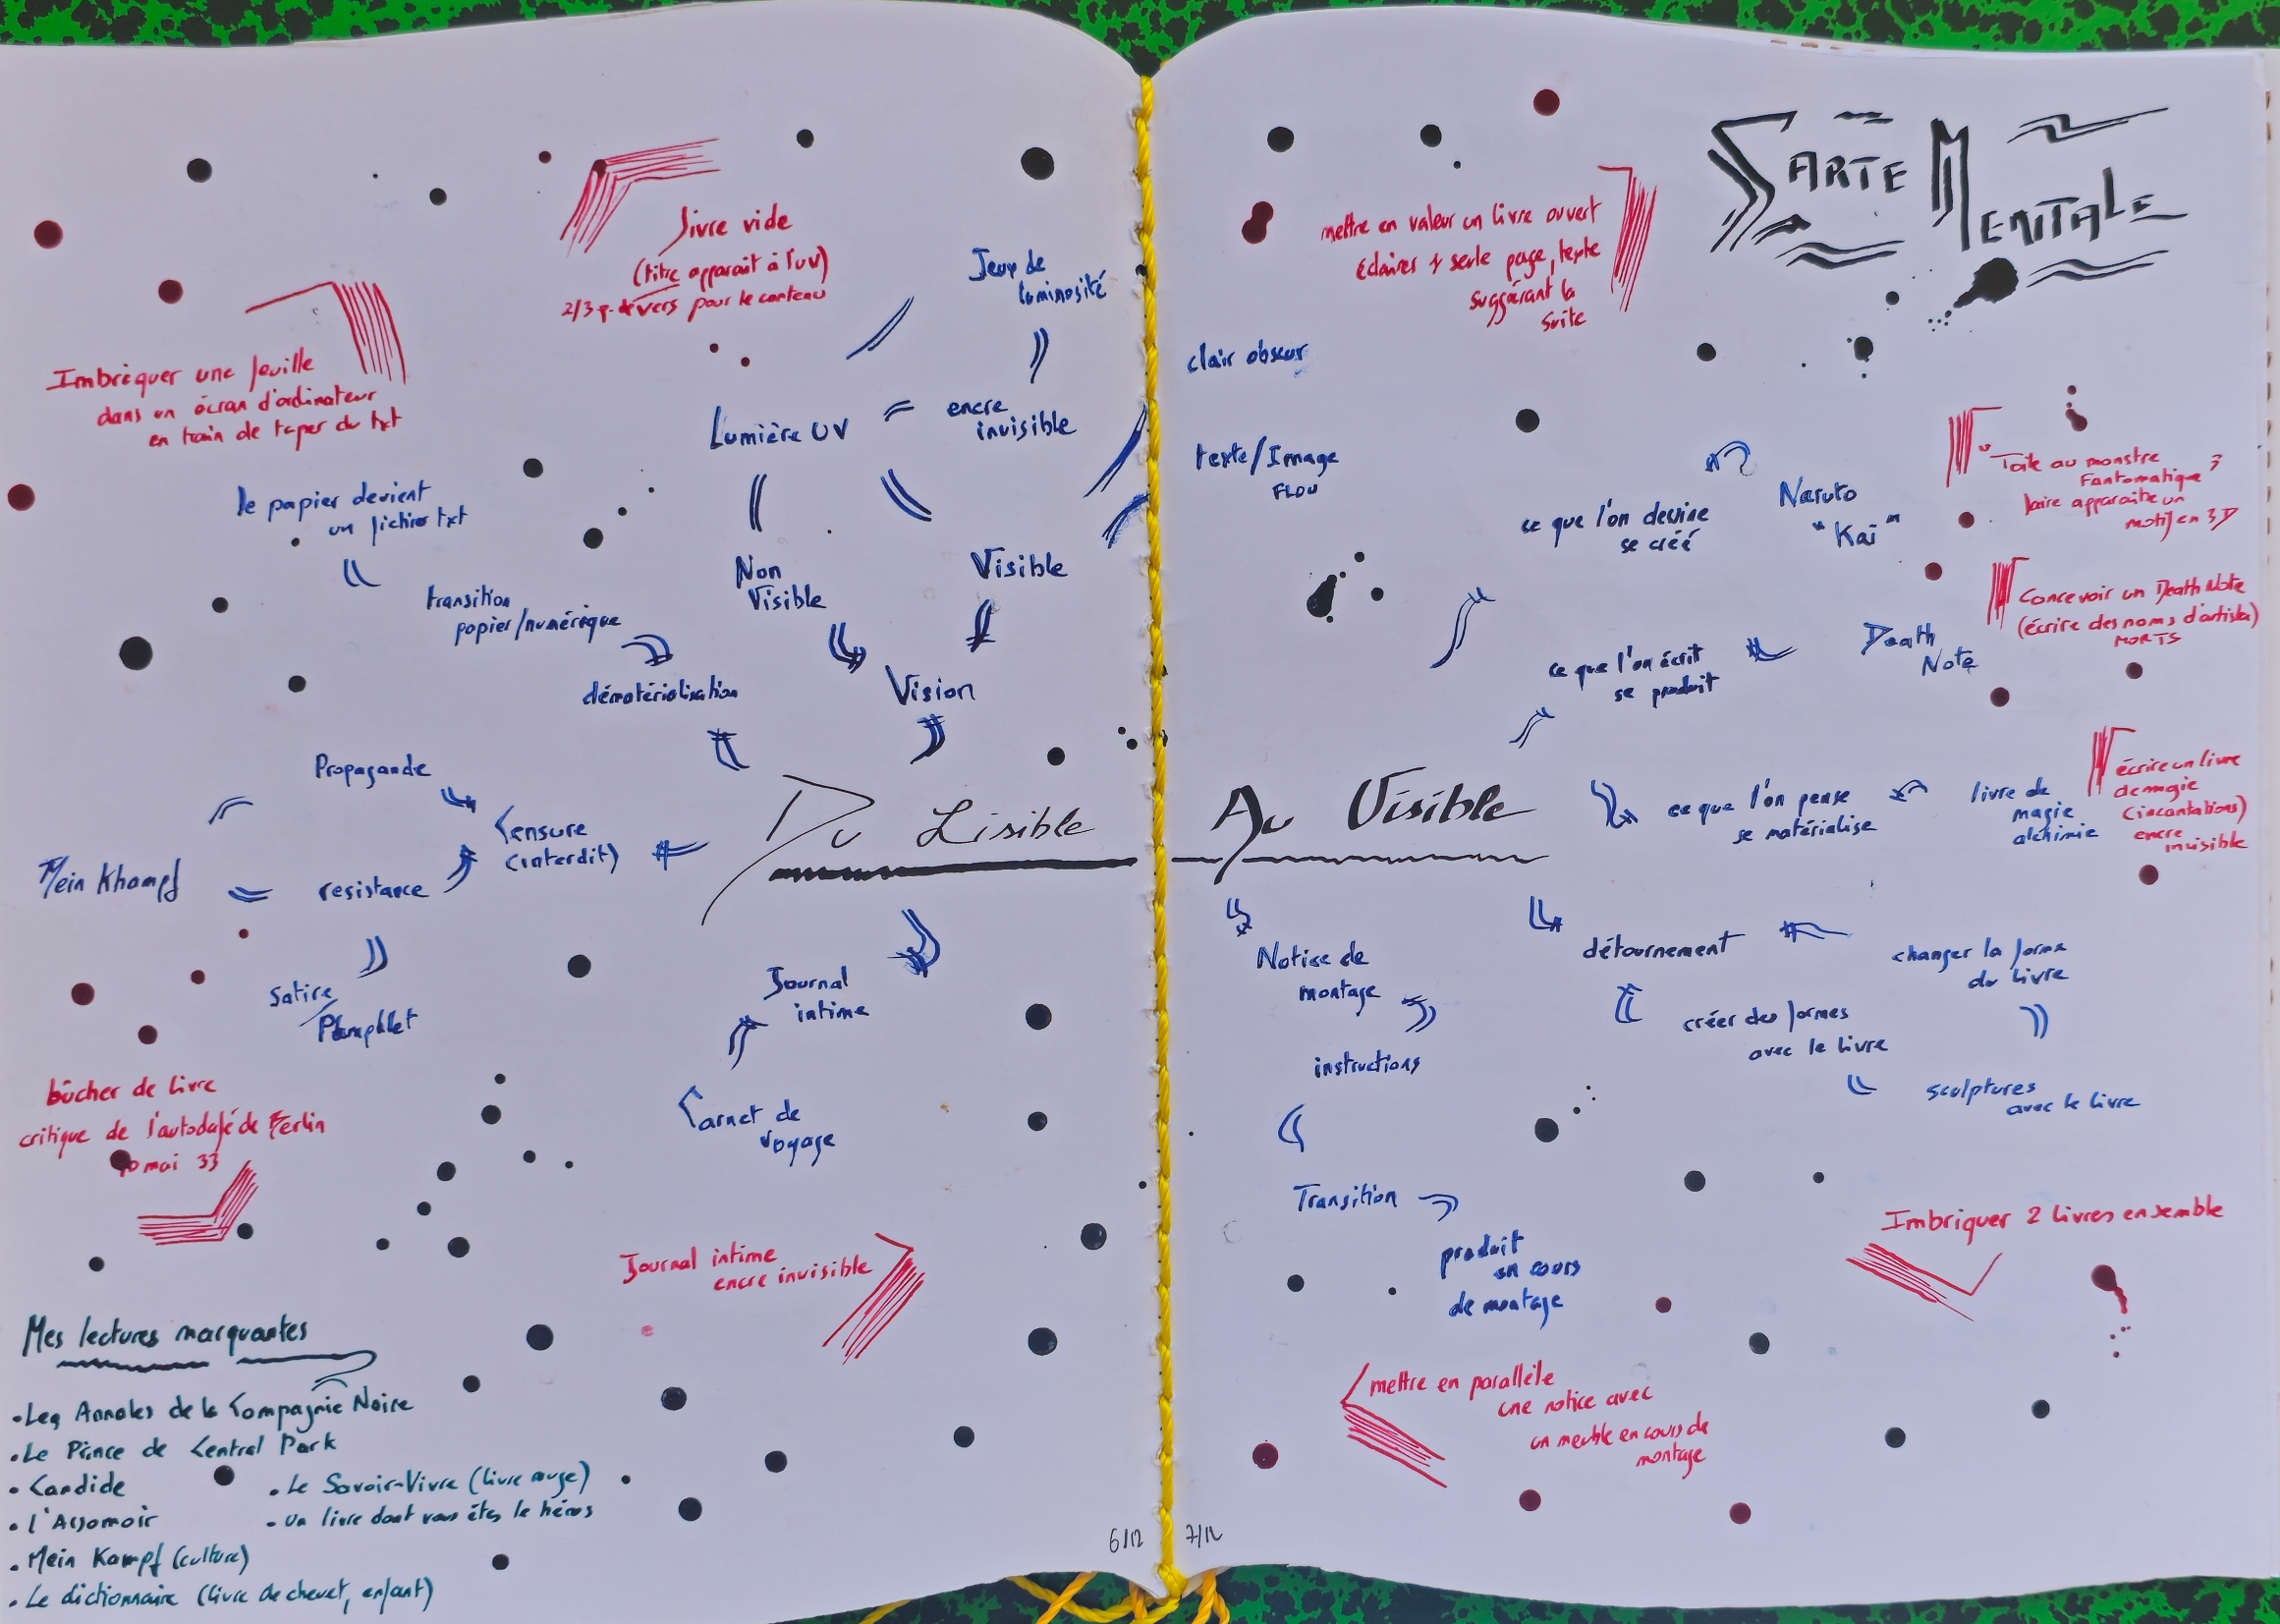 livre vide
(titre apparait à l'uv)
2/3 p. de vers pour le contenu
Jeux de
luminosité
Imbriquer une feuille
dans un écran d'ordinateur
en train de taper du txt
Lumière UV
encre
invisible
le papier devient
un fichier txt
Non
Visible
Visible
transition
papier/numérique
dématérialisation
Vision
Propagande
Censure
(interdit)
Mein Khampf
resistance
Satire/
Pamphlet
Du Lisible
Journal
intime
Carnet de
voyage
bûcher de livre
critique de l'autodafé de Berlin
10 mai 33
Journal intime
encre invisible
Mes lectures marquantes
• Les Annales de la Compagnie Noire
• Le Prince de Central Park
• Candide
• l'Assomoir
• Mein Kampf (culture)
• Le dictionnaire (livre de chevet, enfant)
• Le Savoir-Vivre (livre rouge)
- Un livre dont vous êtes le héros
6/12
CARTE MENTALE
mettre en valeur un livre ouvert
éclairer 1 seule page, texte
suggérant la
suite
clair obscur
texte/Image
FLOU
ce que l'on dessine
se créé
Naruto
"Kai"
Toile au monstre
Fantomatique ?
faire apparaître un
motif en 3D
ce que l'on écrit
se produit
Death
Note
Concevoir un Death Note
(écrire des noms d'artistes)
MORTS
Au Visible
ce que l'on pense
se matérialise
livre de
magie
alchimie
écrire un livre
de magie
(incantations)
encre
invisible
Notice de
montage
détournement
changer la forme
du livre
instructions
créer des formes
avec le livre
sculptures
avec le livre
Transition
produit
en cours
de montage
Imbriquer 2 livres ensemble
mettre en parallèle
une notice avec
un meuble en cours de
montage
7/12